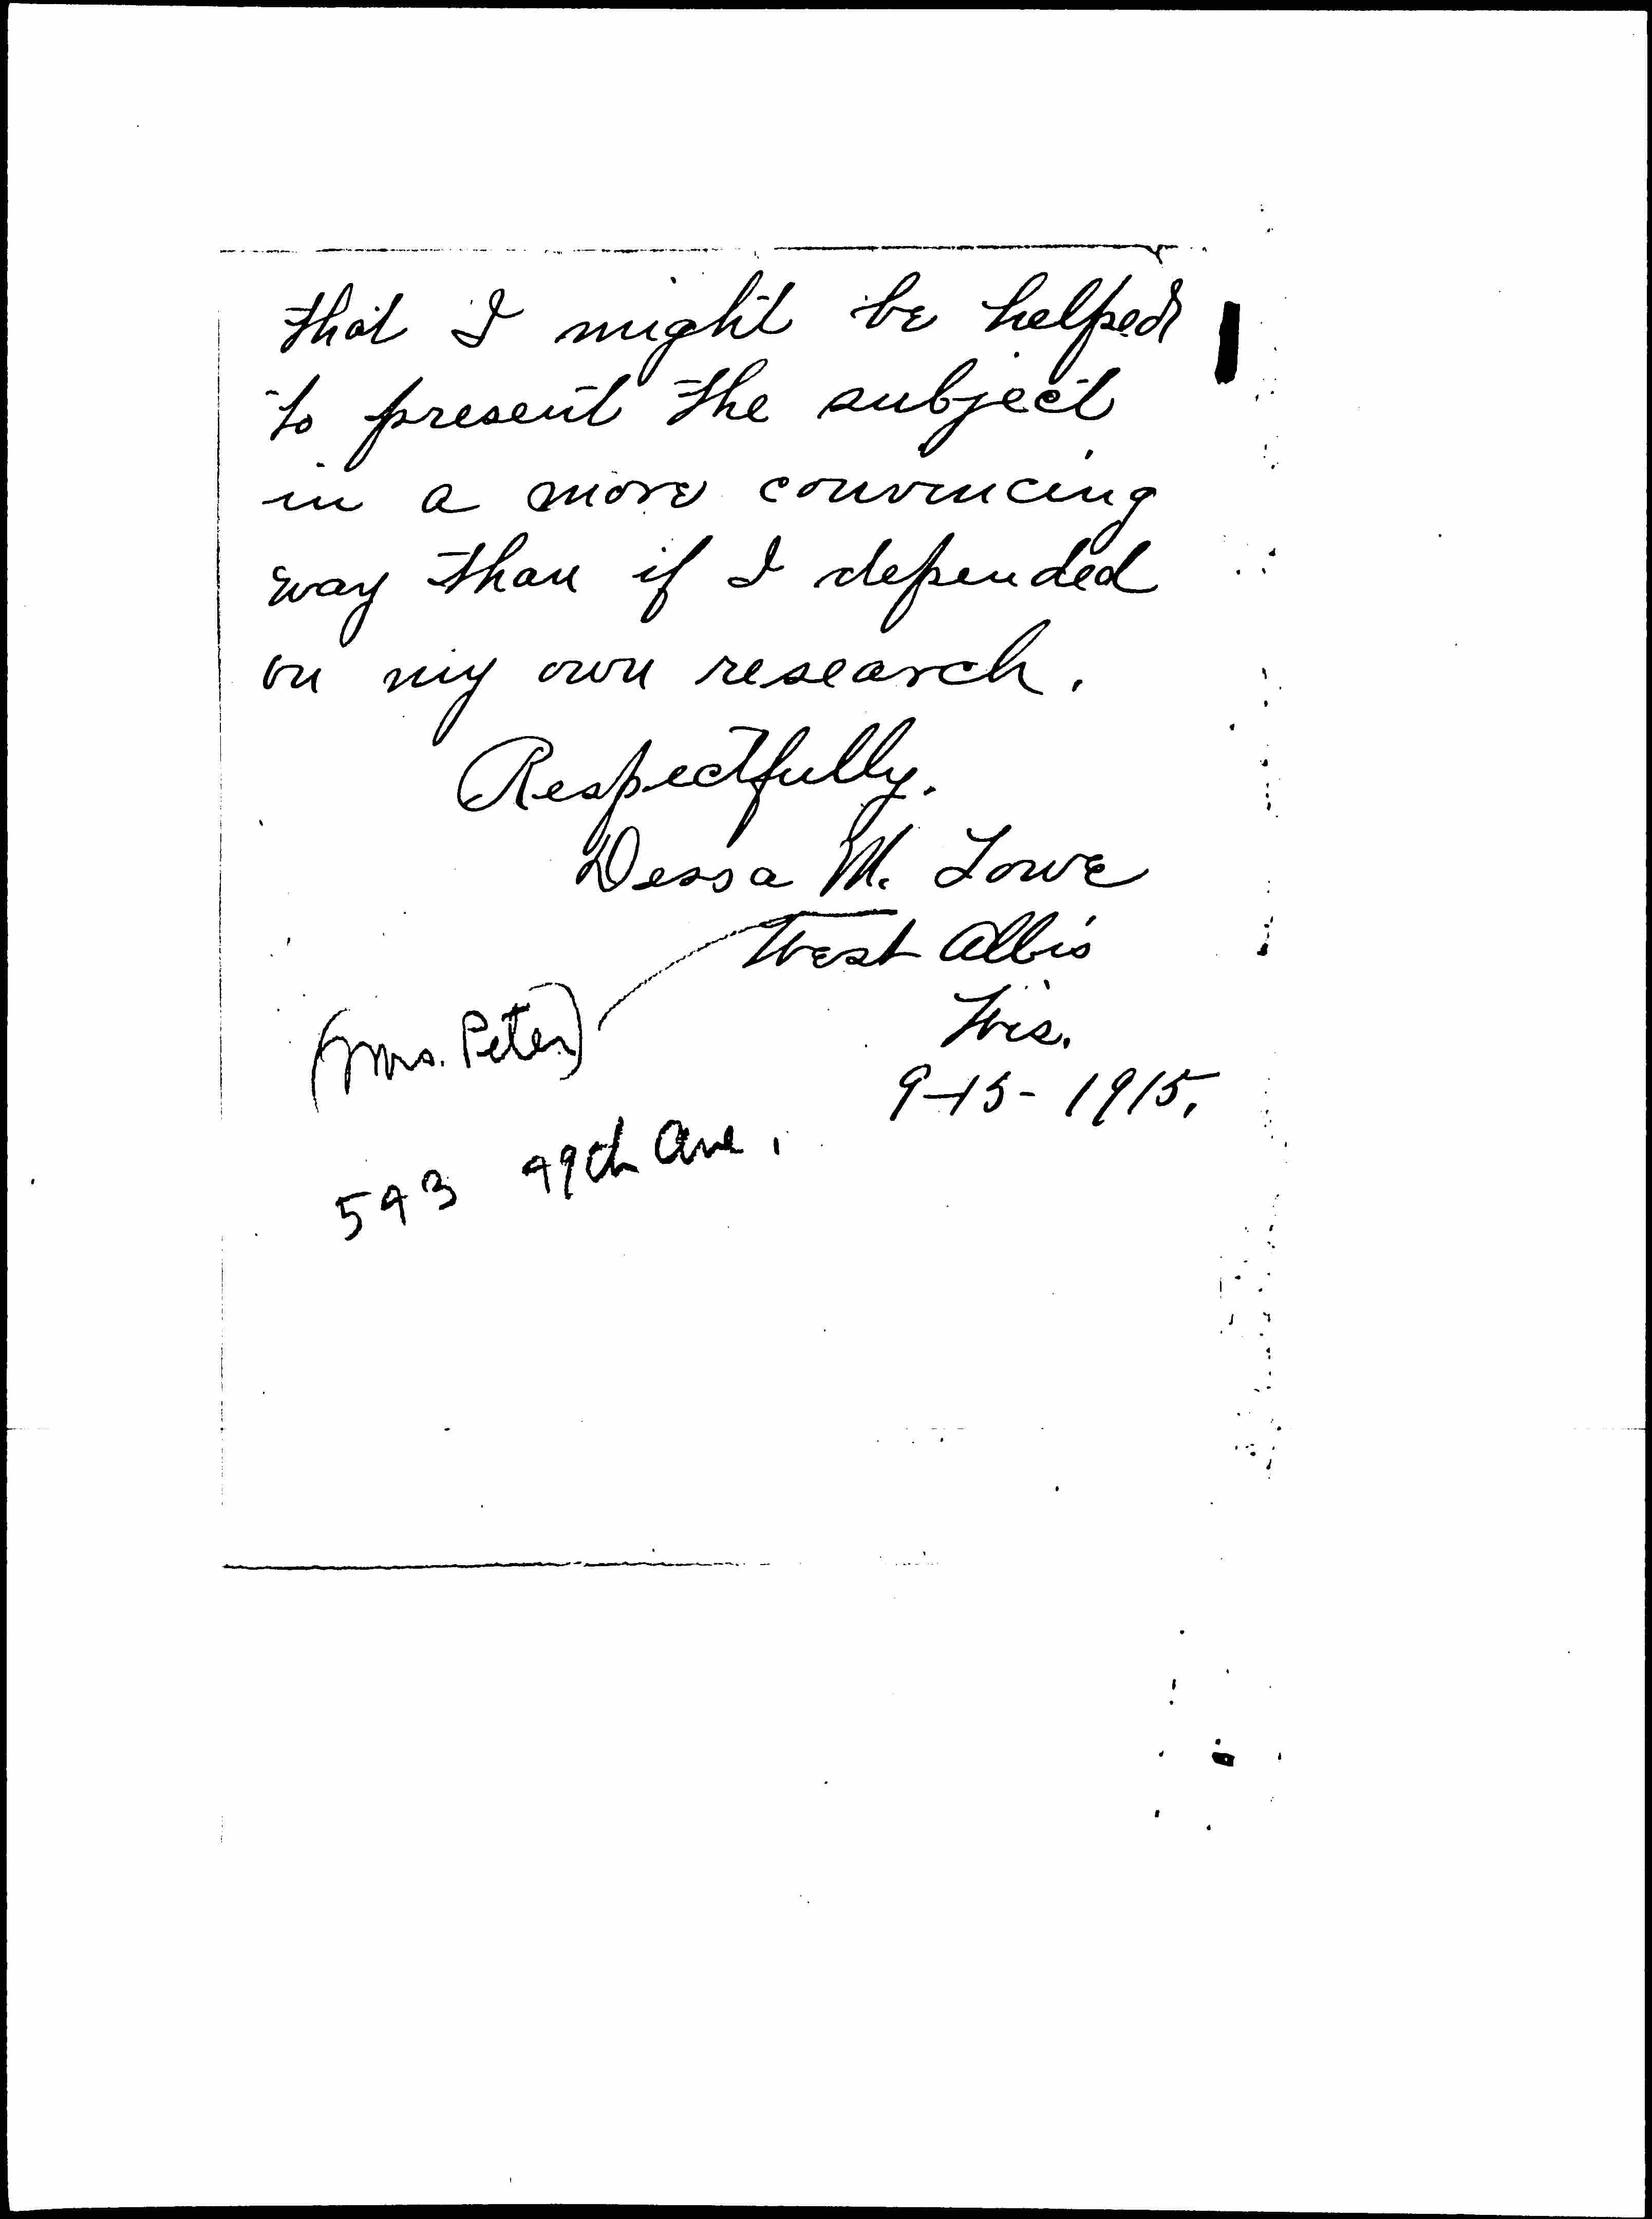 that I might be helped
to present the subject
in a more convincing
way than if I depended
on my own research.
Respectfully.
Dessa M. Lowe
West Allis
(Mrs. Peter)
Wis.
9-15-1915.
543 49th Ave.